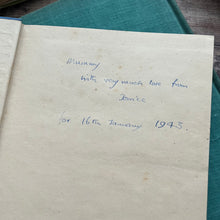 Mummy
with very much love from
Janice
for 16th January 1945.